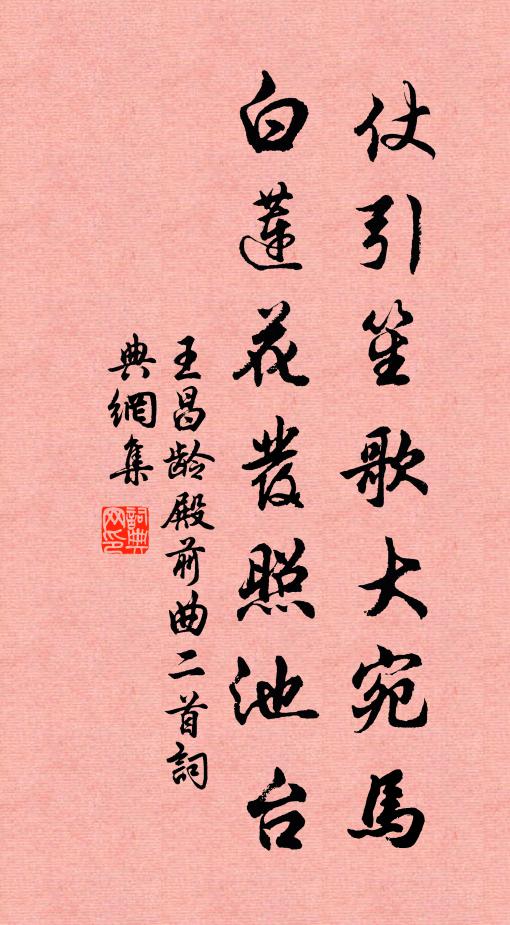 仗引笙歌大宛馬
白蓮花發照池台
王昌龄殿前曲二首詞
典網集
詞典网印